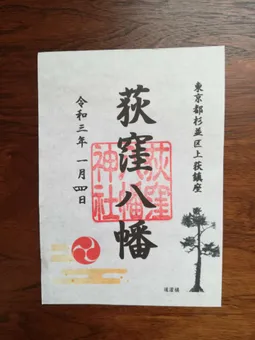 東京都杉並区上荻鎮座
荻窪八幡
荻窪八幡神社
令和三年一月四日
道灌槇